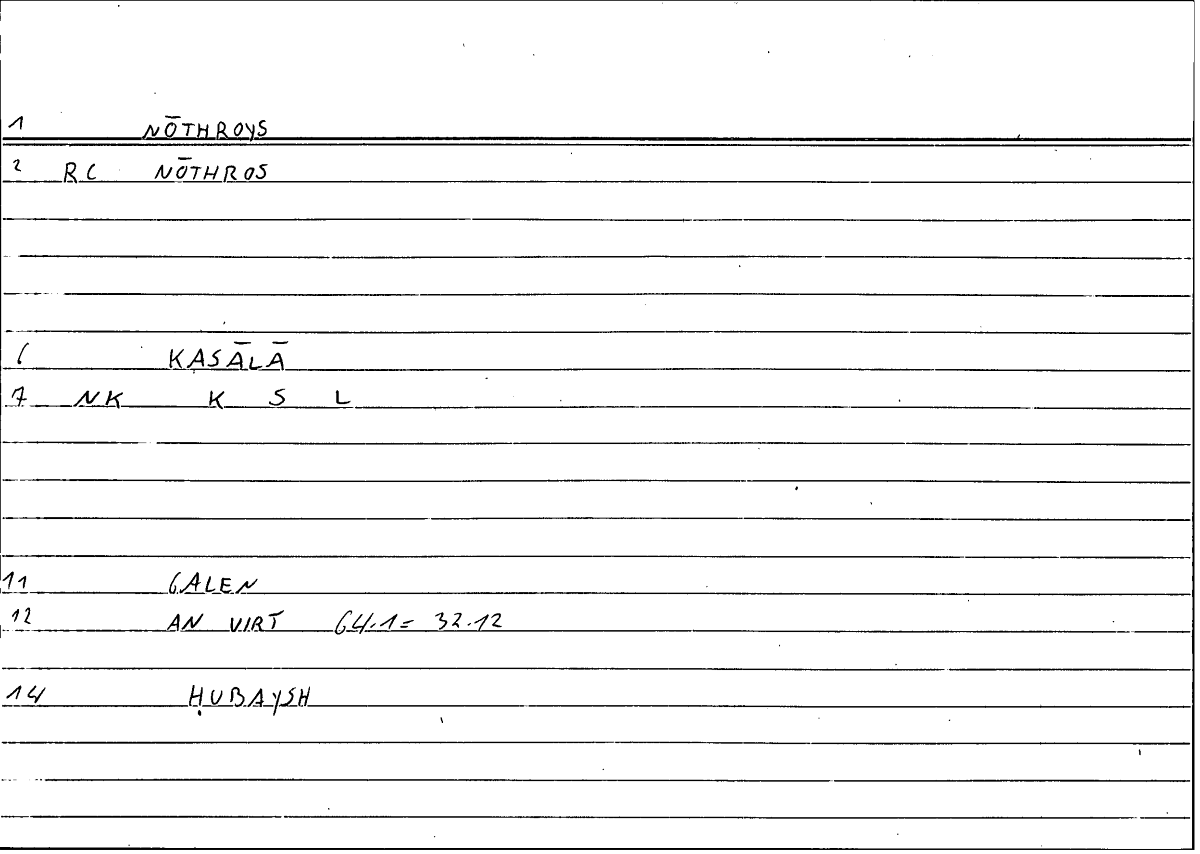 1 NŌTHROYS
2 RC NŌTHROS
6 KASĀLĀ
7 NK K S L
11 GALEN
12 AN VIRT 64.1 = 32.12
14 ḤUBAYSH